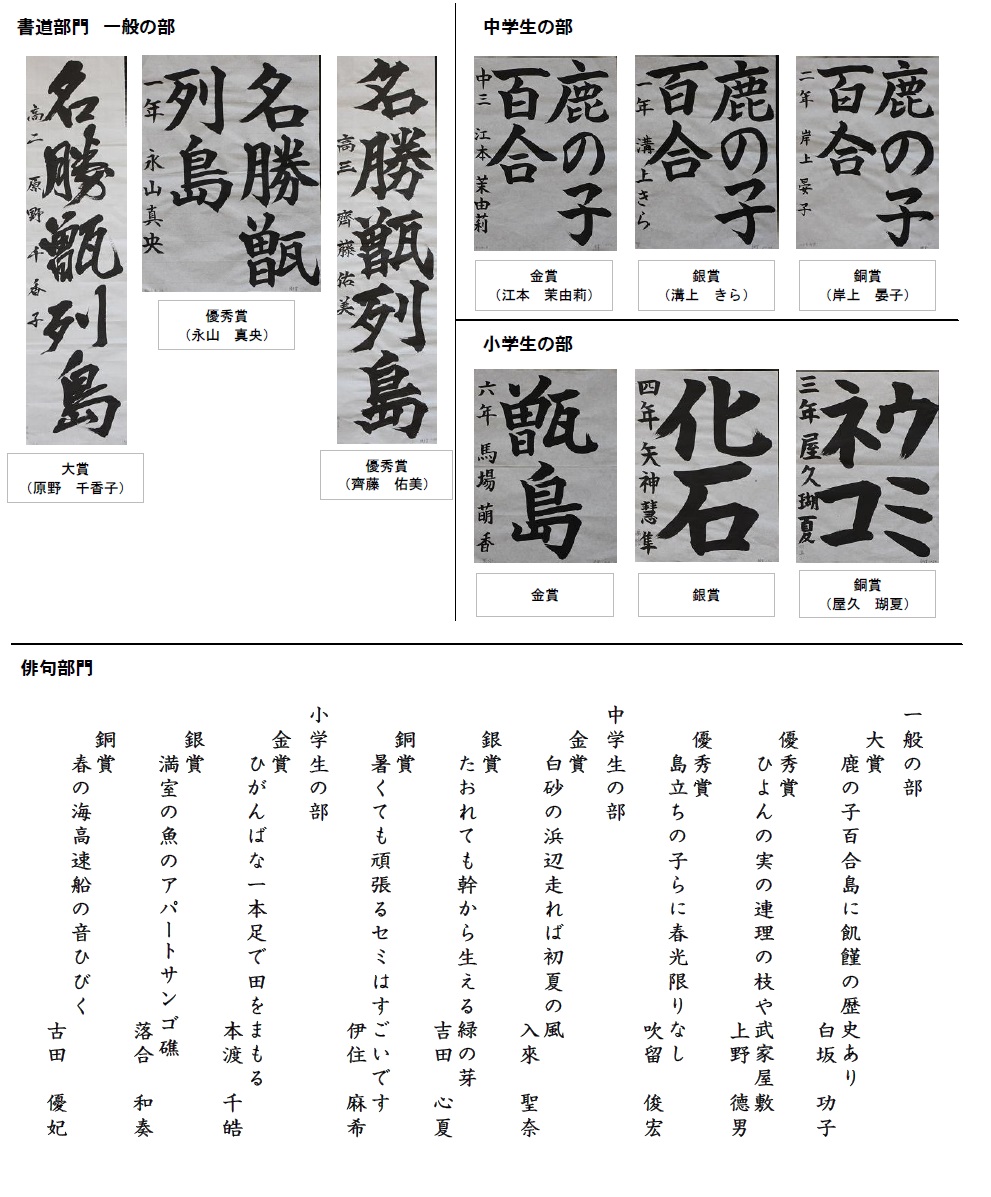 書道部門　一般の部
名勝甑列島
高二　原野　千香子
大賞
（原野　千香子）
名勝甑
列島
一年　永山真央
優秀賞
（永山　真央）
名勝甑列島
高三　齊藤佑美
優秀賞
（齊藤　佑美）
中学生の部
鹿の子
百合
中三　江本　茉由莉
金賞
（江本　茉由莉）
鹿の子
百合
一年　溝上きら
銀賞
（溝上　きら）
鹿の子
百合
二年　岸上晏子
銅賞
（岸上　晏子）
小学生の部
甑島
六年　馬場萌香
金賞
化石
四年　矢神慧隼
銀賞
ウミ
ネコ
三年　屋久瑚夏
銅賞
（屋久　瑚夏）
俳句部門
一般の部
大賞
鹿の子百合島に飢饉の歴史あり
白坂　功子
優秀賞
ひょんの実の連理の枝や武家屋敷
上野　德男
優秀賞
島立ちの子らに春光限りなし
吹留　俊宏
中学生の部
金賞
白砂の浜辺走れば初夏の風
入來　聖奈
銀賞
たおれても幹から生える緑の芽
吉田　心夏
銅賞
暑くても頑張るセミはすごいです
伊住　麻希
小学生の部
金賞
ひがんばな一本足で田をまもる
本渡　千皓
銀賞
満室の魚のアパートサンゴ礁
落合　和奏
銅賞
春の海高速船の音ひびく
古田　優妃